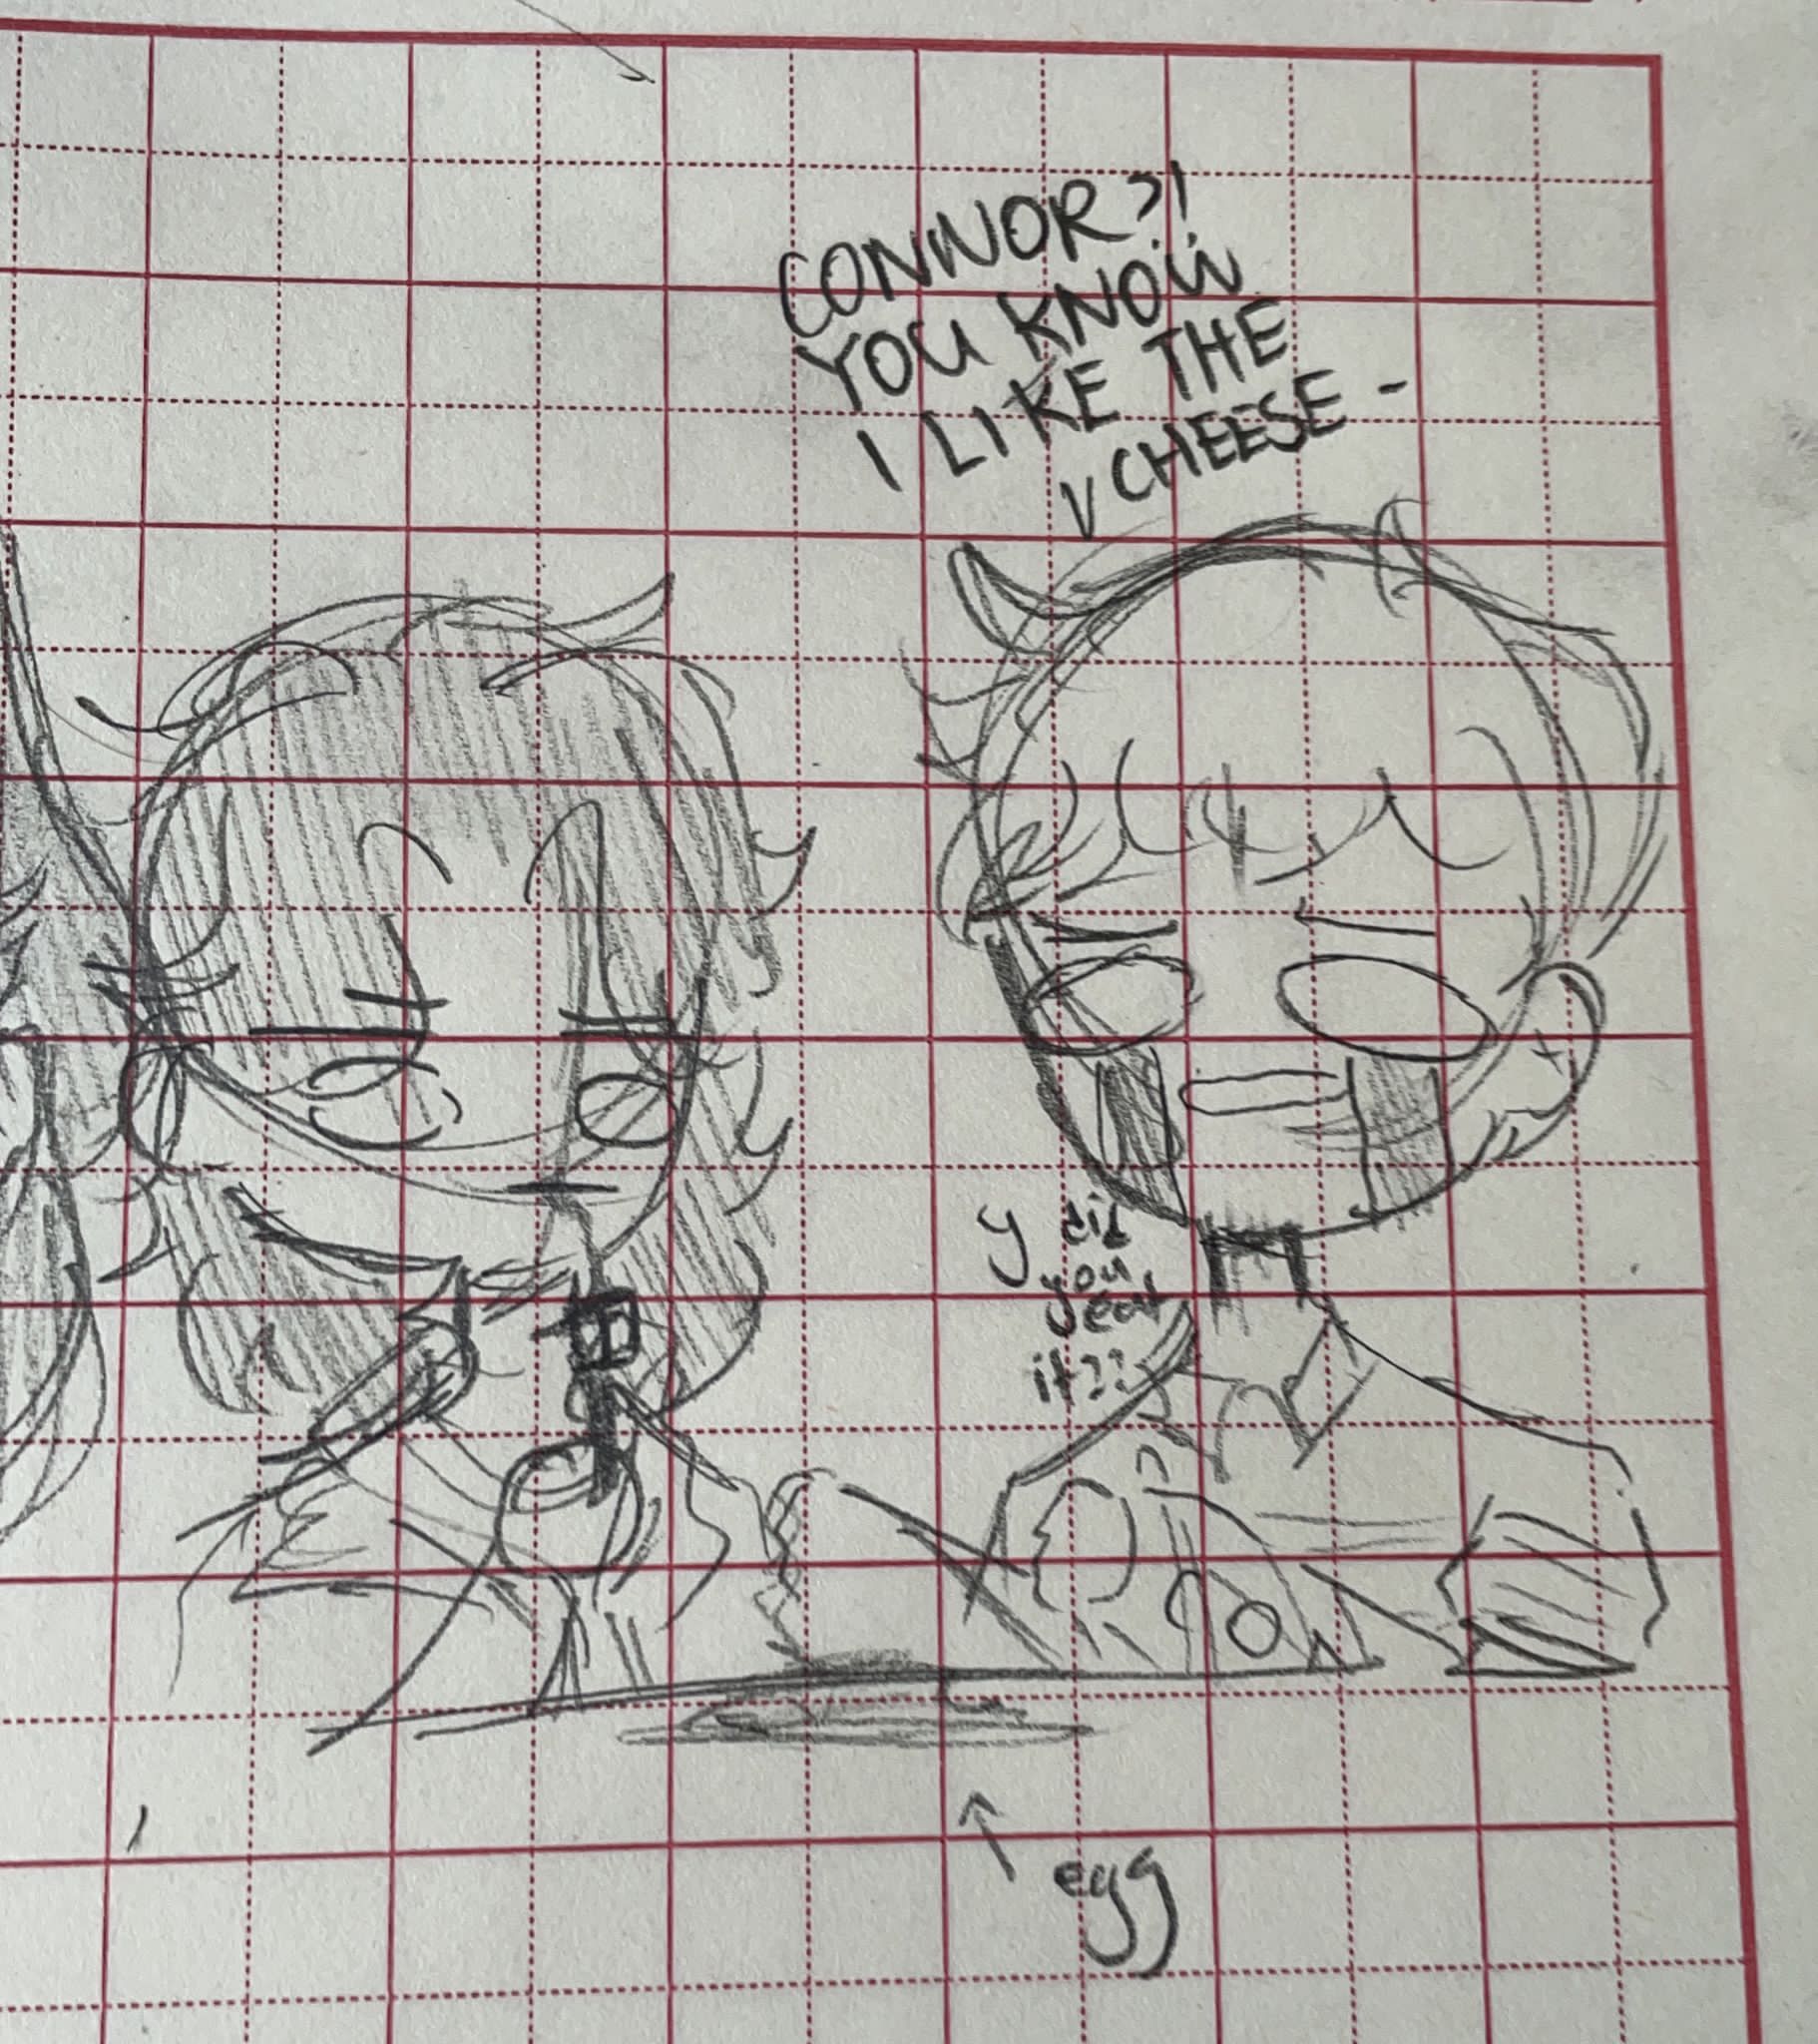 CONNOR?!
YOU KNOW
I LIKE THE
CHEESE-
y did
you
eat
it??
egg